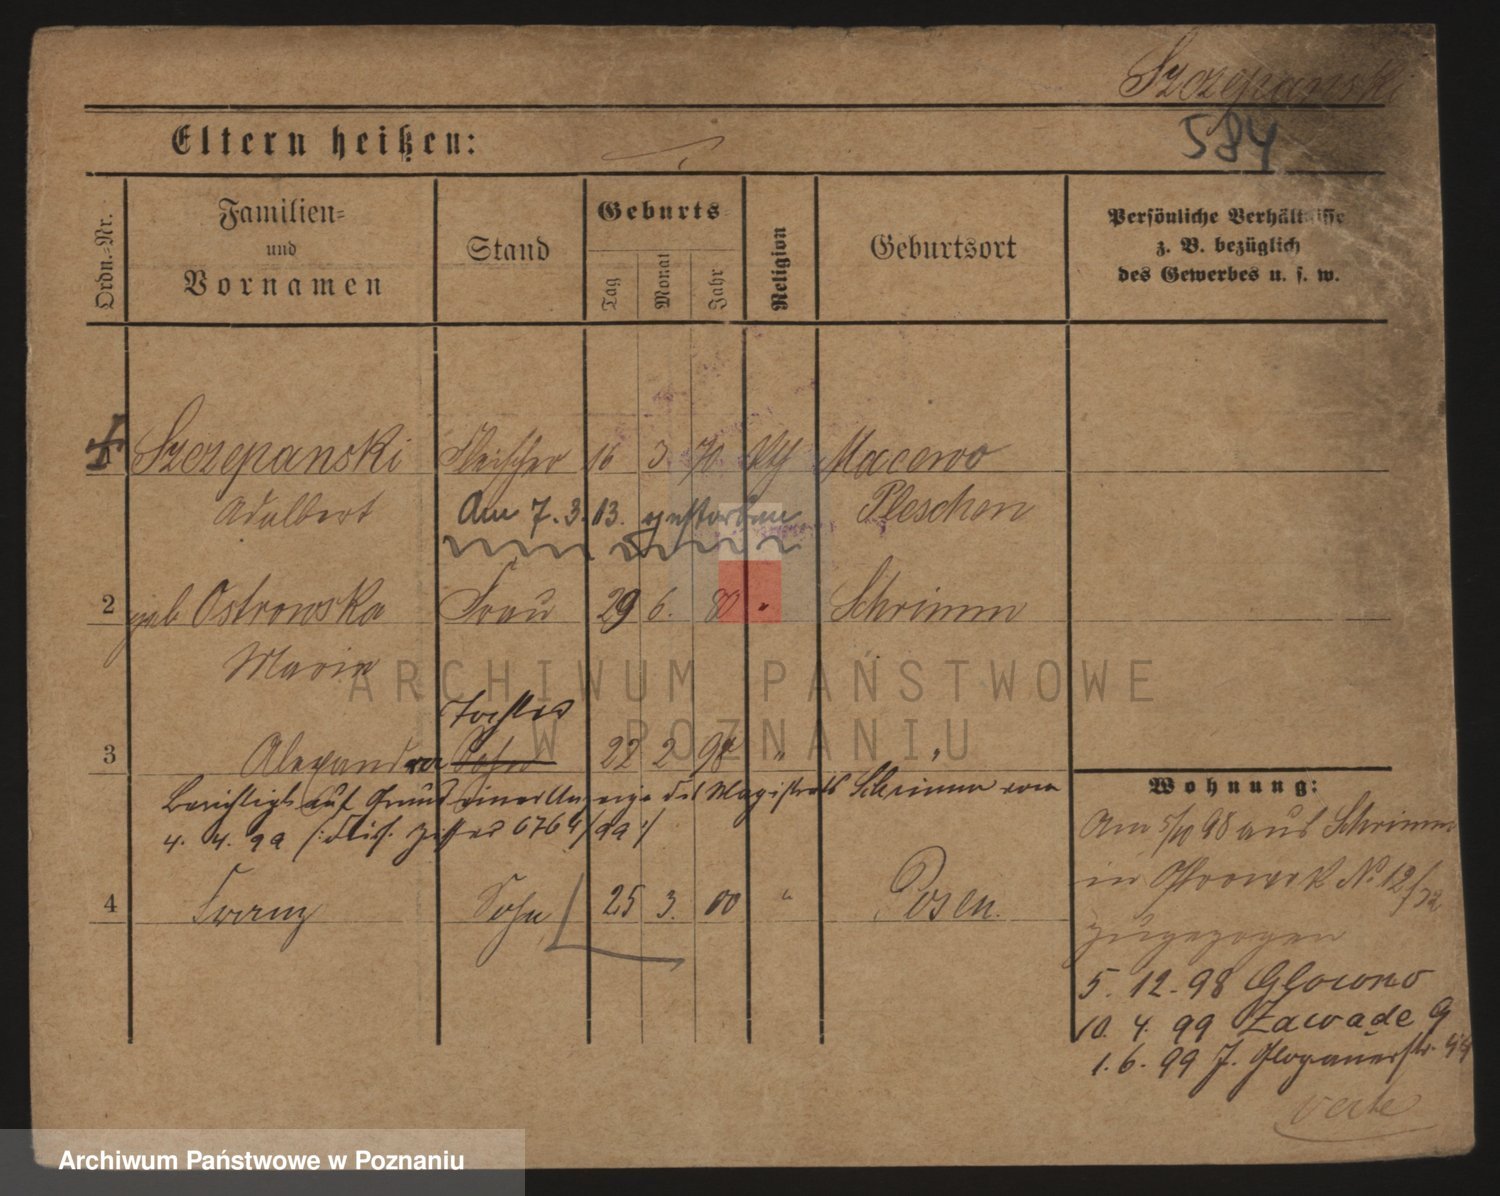 Szczepanski
584
Eltern heißen:
Ordn.-Nr.
Familien- und Vornamen
Stand
Geburts-
Tag
Monat
Jahr
Religion
Geburtsort
Persönliche Verhältnisse
z. B. bezüglich
des Gewerbes u. s. w.
Szczepanski Fleischer 16 3 70 Macewo
Adalbert Am 7. 3. 13. gestorben Pleschen
2 geb Ostrowska Frau 29 6. 80 " Schrimm
Maria
Tochter
3 Alexandra Sohn 22 2 98 " "
Berichtigt auf Grund einer Anzeige des Magistrats Schrimm vom
4. 4. 99
4 Franz Sohn 25 3. 00 " Posen.
Wohnung:
Am 5/10 98 aus Schrimm
in No 12
zugezogen
5. 12. 98 Glowno
10. 4. 99 Zawade 9
1. 6. 99 J. Glogauerstr.
verte
ARCHIWUM PAŃSTWOWE
W POZNANIU
Archiwum Państwowe w Poznaniu